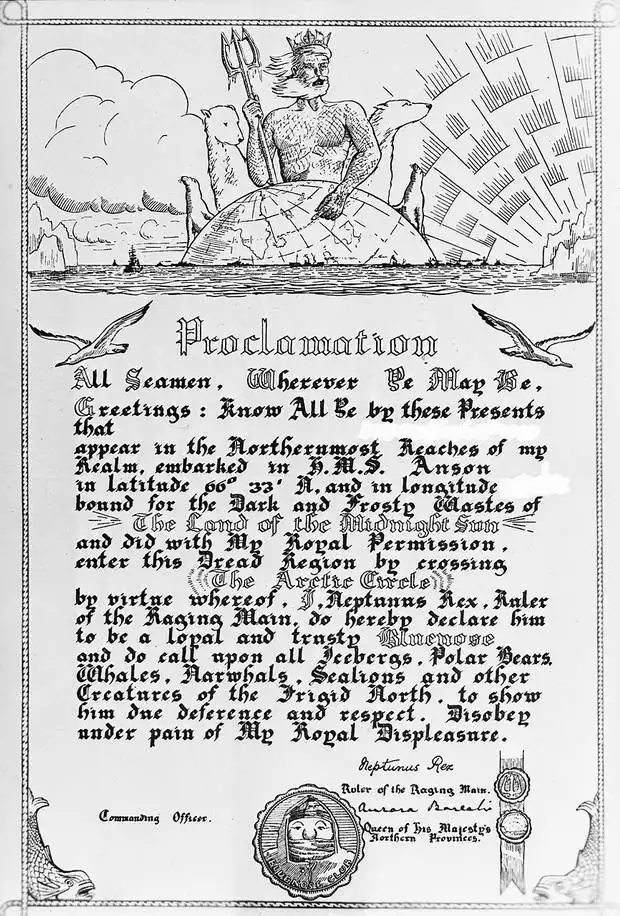 Proclamation
All Seamen, Wherever Ye May Be,
Greetings: Know All Ye by these Presents
that
appear in the Northernmost Reaches of my
Realm, embarked in H.M.S. Anson
in latitude 66° 33' N, and in longitude
bound for the Dark and Frosty Wastes of
The Land of the Midnight Sun
and did with My Royal Permission,
enter this Dread Region by crossing
The Arctic Circle
by virtue whereof, I, Neptunus Rex, Ruler
of the Raging Main, do hereby declare him
to be a loyal and trusty Bluenose
and do call upon all Icebergs, Polar Bears,
Whales, Narwhals, Sealions and other
Creatures of the Frigid North, to show
him due deference and respect. Disobey
under pain of My Royal Displeasure.
Neptunus Rex
Ruler of the Raging Main.
Aurora Borealis
Queen of His Majesty's
Northern Provinces.
Commanding Officer.
BLUENOSE CLUB